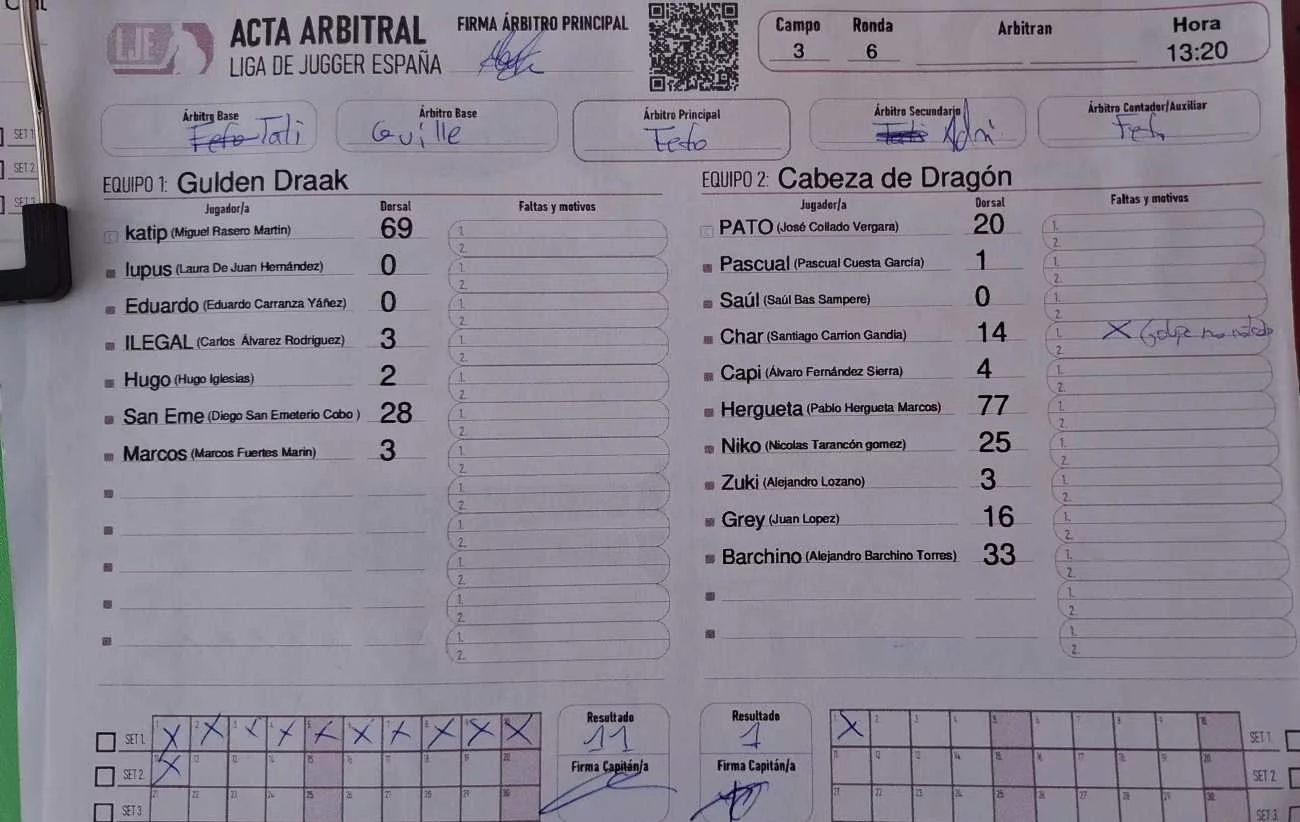 LJE
ACTA ARBITRAL
LIGA DE JUGGER ESPAÑA
FIRMA ÁRBITRO PRINCIPAL
Campo Ronda Arbitran Hora
3 6 13:20
Árbitro Base
Fefo Tati
Árbitro Base
Guille
Árbitro Principal
Fefo
Árbitro Secundario
Tati Adri
Árbitro Contador/Auxiliar
Fefo
EQUIPO 1: Gulden Draak
Jugador/a Dorsal Faltas y motivos
katip (Miguel Rasero Martin) 69
lupus (Laura De Juan Hernández) 0
Eduardo (Eduardo Carranza Yáñez) 0
ILEGAL (Carlos Álvarez Rodriguez) 3
Hugo (Hugo Iglesias) 2
San Eme (Diego San Emeterio Cobo ) 28
Marcos (Marcos Fuertes Marin) 3
EQUIPO 2: Cabeza de Dragón
Jugador/a Dorsal Faltas y motivos
PATO (José Collado Vergara) 20
Pascual (Pascual Cuesta García) 1
Saúl (Saúl Bas Sampere) 0
Char (Santiago Carrion Gandia) 14 1. X Golpe no notado
Capi (Álvaro Fernández Sierra) 4
Hergueta (Pablo Hergueta Marcos) 77
Niko (Nicolas Tarancón gomez) 25
Zuki (Alejandro Lozano) 3
Grey (Juan Lopez) 16
Barchino (Alejandro Barchino Torres) 33
SET 1
SET 2
SET 3
Resultado
11
Firma Capitán/a
Resultado
1
Firma Capitán/a
SET 1
SET 2
SET 3